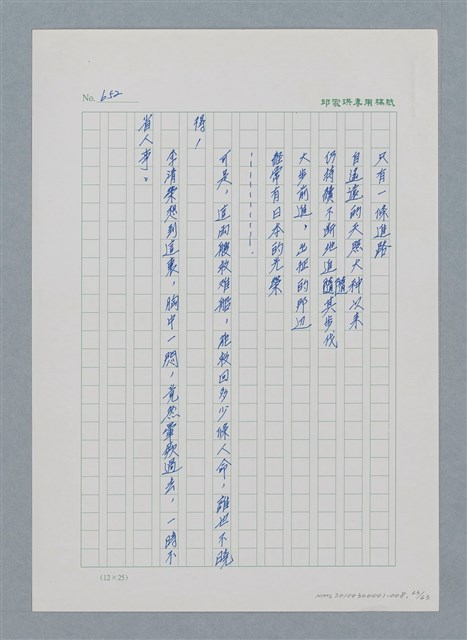 No. 652
邱家洪專用稿紙
只有一條進路
自遙遠的天照大神以來
仍將續不斷地追隨其步伐
隨
大步前進，出征的那边
經常有日本的光榮
－－－－－－－－－.
可是，這兩艘救难船，能救回多少條人命，誰也不曉
得！
李清榮想到這裏，胸中一悶，竟然暈厥過去，一時不
省人事。
(12×25)
63/63